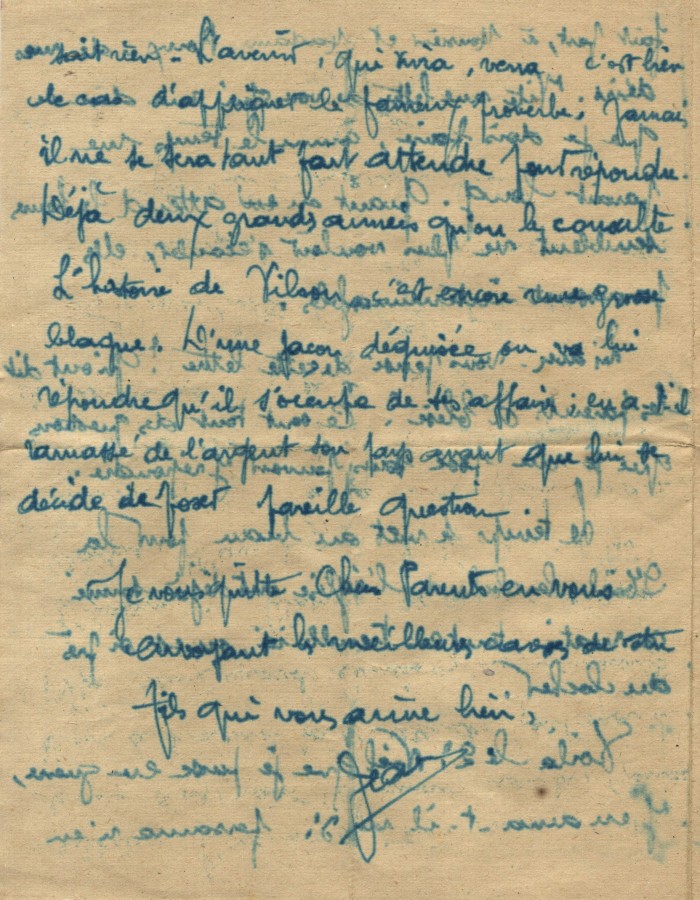 sait rien - L'avenir, qui vivra, verra c'est bien
le cas d'appliquer le fameux proverbe; Jamais
il ne se sera tant fait attendre pour répondre.
Déjà deux grands années qu'on le consulte.
L'histoire de Vilson c'est encore une grosse
blague. D'une façon déguisée on va lui
répondre qu'il s'occupe de ses affaires; en a-t-il
ramassé de l'argent son pays avant que lui se
décide de poser pareille question
Je vous quitte Chers Parents en vous
envoyant les meilleurs de votre
fils qui vous aime bien.
Jean